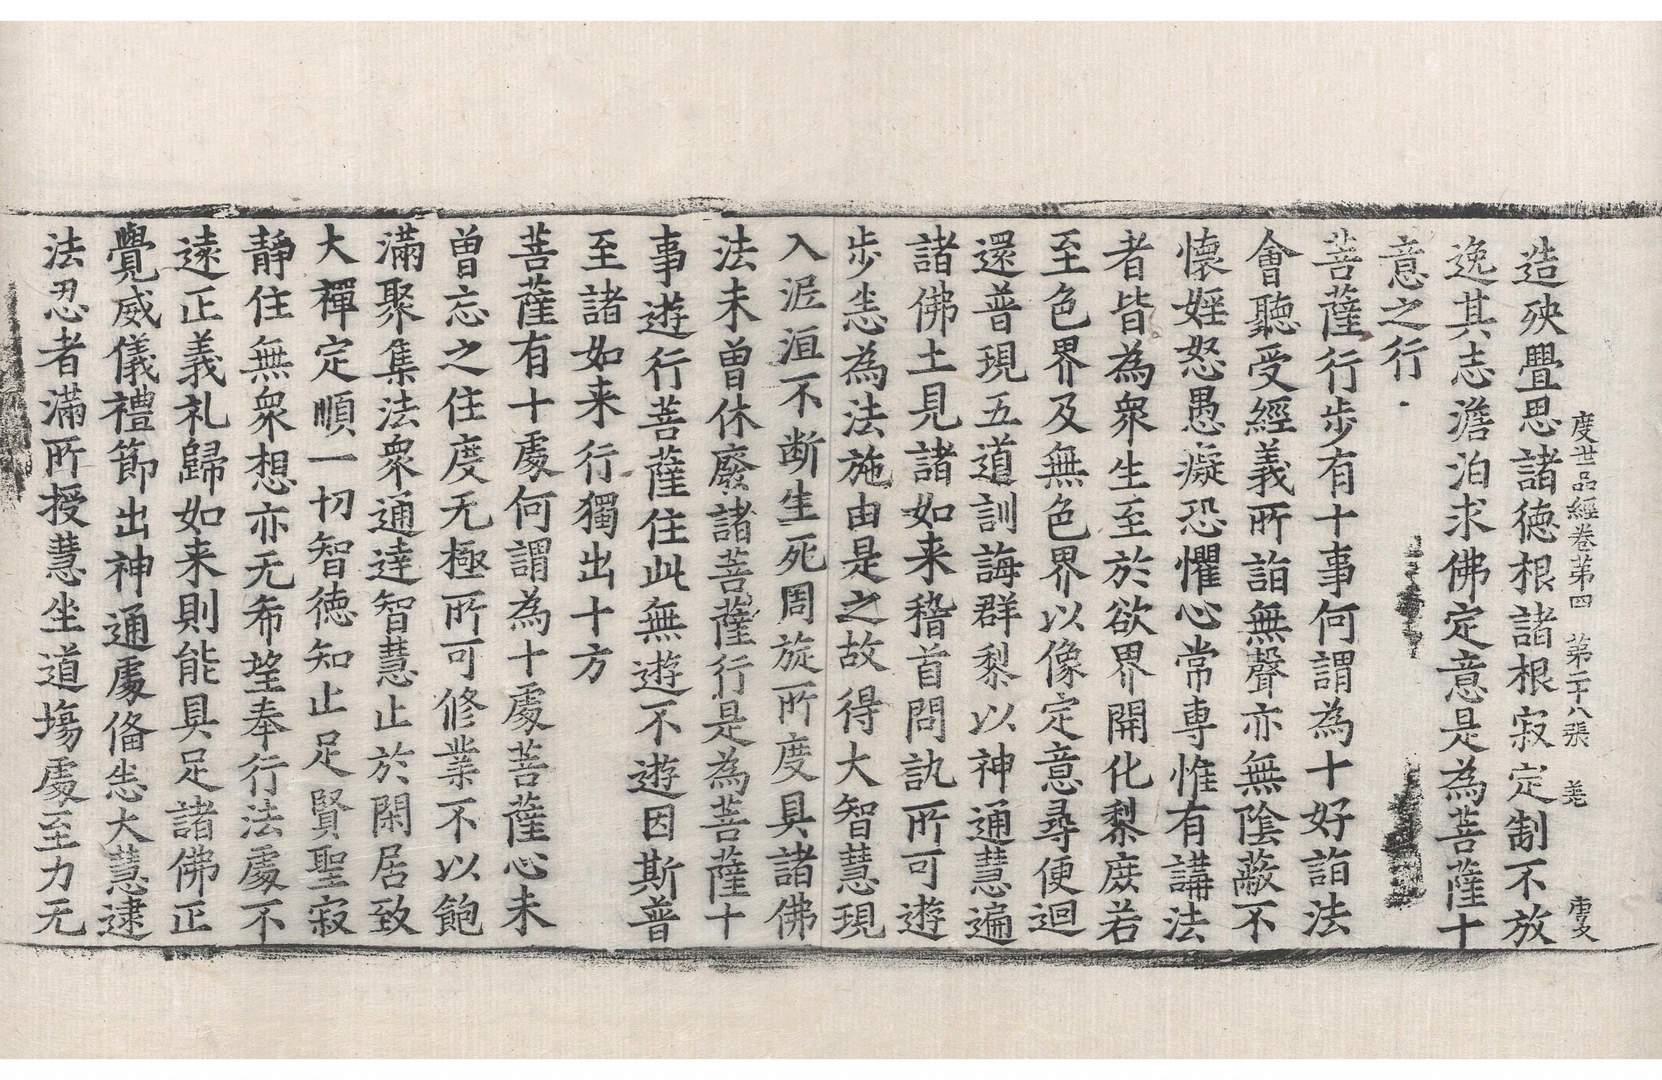 度世品經卷第四　第二十八張　羌　唐文
造殃舋思諸德根諸根寂定制不放
逸其志澹泊求佛定意是為菩薩十
意之行
菩薩行步有十事何謂為十好詣法
會聽受經義所詣無聲亦無陰蔽不
懷婬怒愚癡恐懼心常専惟有講法
者皆為衆生至於欲界開化黎庶若
至色界及無色界以像定意尋便迴
還普現五道訓誨群黎以神通慧遍
諸佛土見諸如来稽首問訊所可遊
步恙為法施由是之故得大智慧現
入泥洹不断生死周旋所度具諸佛
法未曽休廢諸菩薩行是為菩薩十
事遊行菩薩住此無遊不遊因斯普
至諸如来行獨出十方
菩薩有十處何謂為十處菩薩心未
曽忘之住度无極所可修業不以飽
滿聚集法衆通達智慧止於閑居致
大禪定順一切智德知止足賢聖寂
靜住無衆想亦无希望奉行法處不
遠正義礼歸如来則能具足諸佛正
覺威儀禮節出神通處俻恙大慧逮
法忍者滿所授慧坐道場處至力无